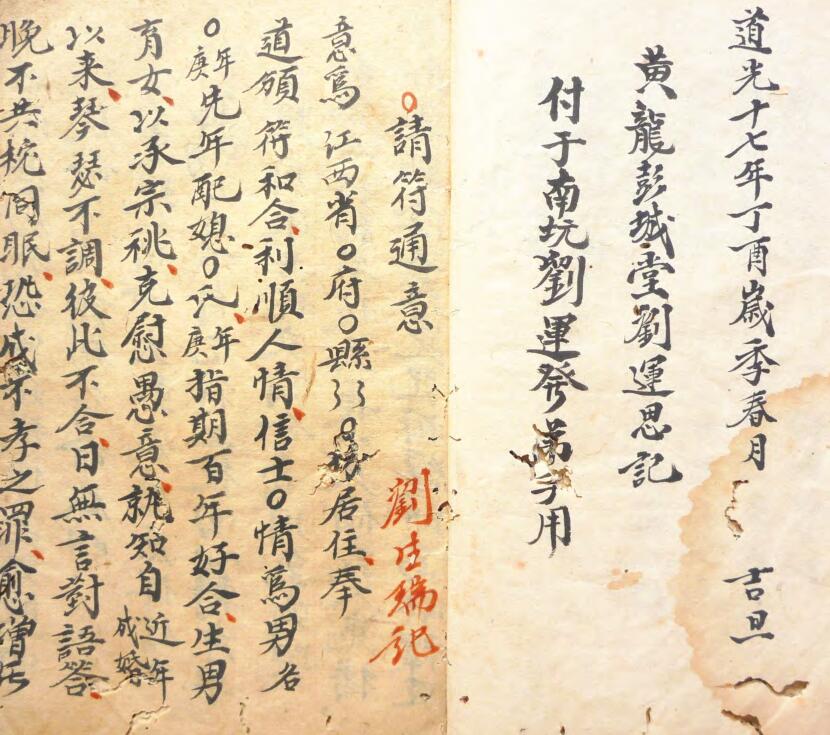 道光十七年丁酉歲季春月 吉旦
黄龍彭城堂劉運思記
付于南坑劉運發弟子用
○請符通意 劉生瑞記
意爲江西省○府○縣○居住奉
道頒符和合利順人情信士○情爲男名
○庚年先年配媳○氏庚年指期百年好合生男
育女以承宗祧克慰愚意就知自近年成婚
以来琴瑟不調彼此不合日無言對語答
晚不共枕同眠恐成不孝之罪愈增